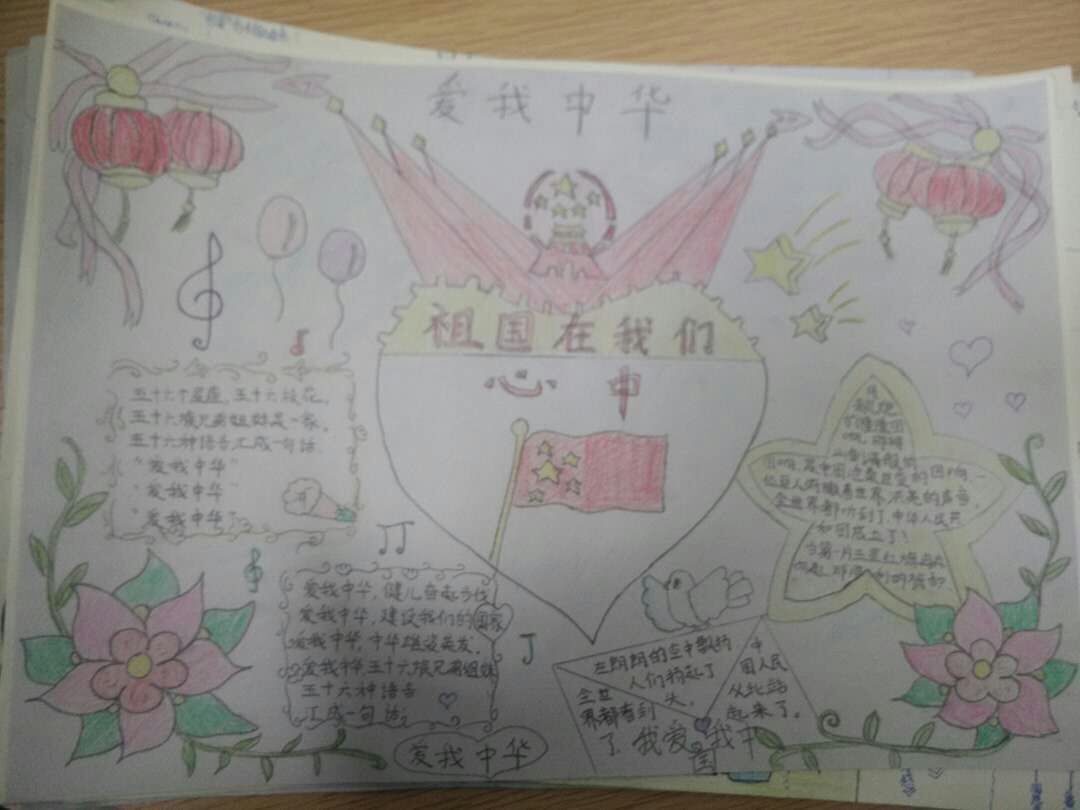 爱我中华
祖国在我们
心中
五十六个星座,五十六枝花,
五十六族兄弟姐妹是一家,
五十六种语言汇成一句话
"爱我中华"
"爱我中华"
"爱我中华"
爱我中华,健儿奋起步伐
爱我中华,建设我们的国家
爱我中华,中华雄姿英发,
爱我中华五十六族兄弟姐妹
五十六种语言
汇成一句话,
爱我中华
在朗朗的空中飘扬
人们扬起了
头。
全世
界都看到
了
中
国人民
从此站
起来了。
我爱我中
国
位巨人向着世界
全世界都听到了,中华人民共
和国成立了!
当第一片五星红旗